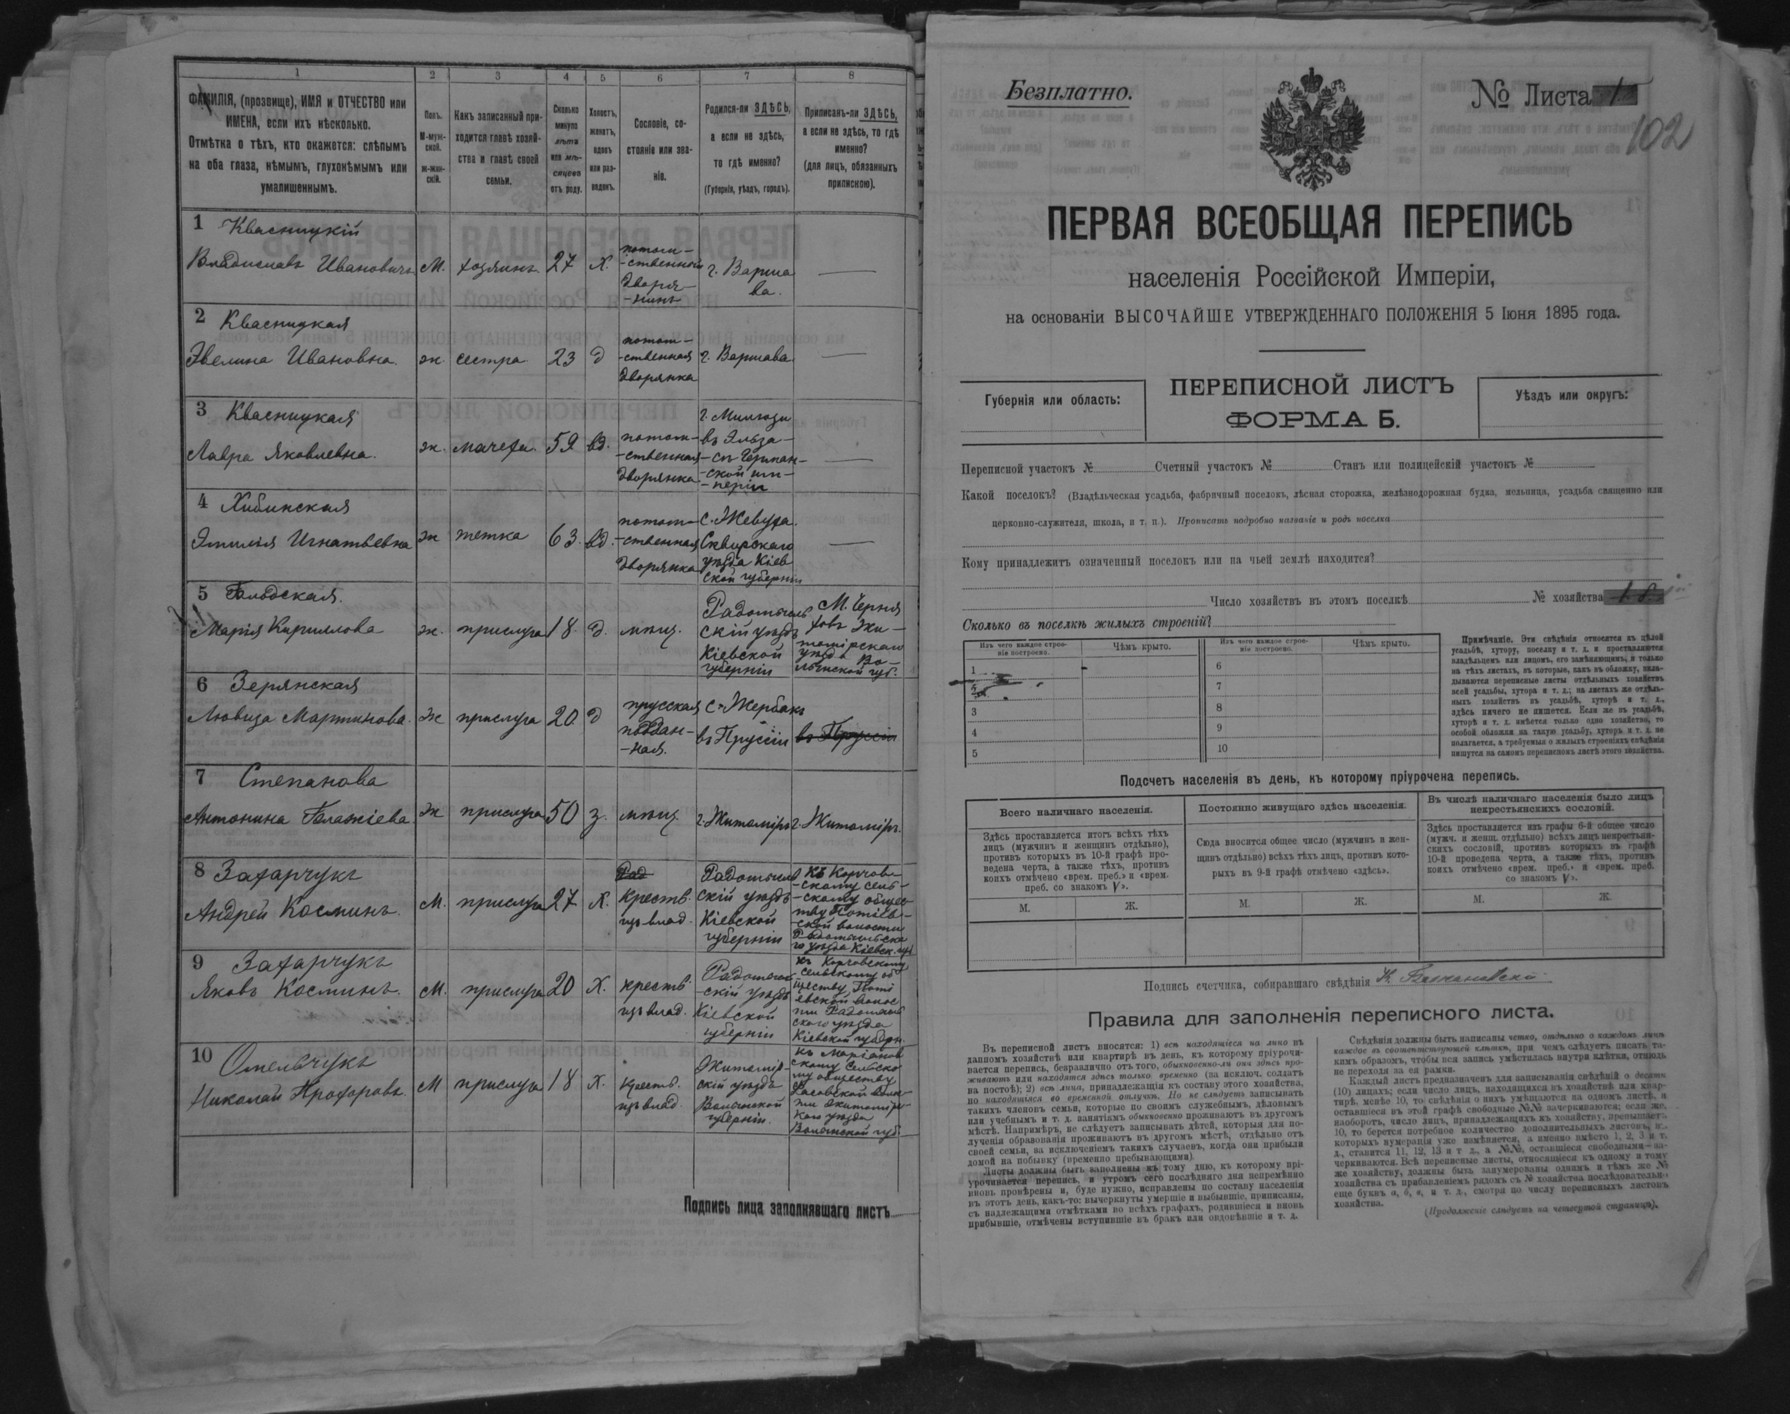 1
2
3
4
5
6
7
8
ФАМИЛІЯ, (прозвище), ИМЯ и ОТЧЕСТВО или
ИМЕНА, если ихъ нѣсколько.
Отмѣтка о тѣхъ, кто окажется: слѣпымъ
на оба глаза, нѣмымъ, глухонѣмымъ или
умалишеннымъ.
Полъ.
М-муж-
ской.
Ж-жен-
скій.
Какъ записанный при-
ходится главѣ хозяй-
ства и главѣ своей
семьи.
Сколько
минуло
лѣтъ
или мѣ-
сяцевъ
отъ роду.
Холостъ,
женатъ,
вдовъ
или раз-
веденъ.
Сословіе, со-
стояніе или зва-
ніе.
Родился-ли ЗДѢСЬ,
а если не здѣсь,
то гдѣ именно?
(Губернія, уѣздъ, городъ).
Приписанъ-ли ЗДѢСЬ,
а если не здѣсь, то гдѣ
именно?
(для лицъ, обязанныхъ
припискою).
1 Квасницкій
Владиславъ Ивановичъ М. хозяинъ 27 х.
потом-
-ственный
дворя-
-нинъ
г. Варша
ва.
2 Квасницкая
Эвелина Ивановна. ж. сестра 23 д
потом-
-ственная
дворянка
г. Варшава
3 Квасницкая
Лавра Яковлевна. ж. мачеха. 59 вд.
потом-
-ственная
дворянка
г. Милгаузи
въ Эльза-
-съ Герман-
-ской им-
-періи
4 Хибинская
Эмилія Игнатьевна ж тетка 63 вд.
потом-
-ственная
дворянка
Сквирскаго
уѣзда Кіев
ской губерніи
5
Марія Кириллова ж. прислуга 18 д. мѣщ.
Радомысль
скій уѣздъ
Кіевской
губерніи
М. Черня
ховъ Жи-
томірскаго
уѣзда Во-
лынской губ.
6 Зерянская
Людвига Мартинова. ж прислуга 20 д
прусская
поддан-
-ная.
въ Пруссіи
въ Пруссіи
7 Степанова
Антонина Блажіева ж прислуга 50 з. мѣщ. г. Житоміръ г. Житоміръ.
8 Захарчукъ
Андрей Косминъ. М. прислуга 27 х.
Рад
Крестъ.
изъ влад.
Радомысль
скій уѣздъ
Кіевской
губерніи
Къ Корчов-
-скому сель-
-скому общес
тву Потіев-
-ской волости
Радомысльска
го уѣзда Кіевск. губ.
9 Захарчукъ
Яковъ Косминъ. М. прислуга 20 х.
крестъ.
изъ влад.
Радомысль
-скій уѣздъ
Кіевской
губерніи
къ Корчовскому
сельскому об
ществу Поті
евской волос
ти Радомысль
скаго уѣзда
Кіевской губерн.
10 Омельчукъ
Николай Прохоровъ. М прислуга 18 х.
Крестъ.
изъ влад.
Житомір-
скій уѣздъ
Волынской
губерніи.
Къ Маріанов
скому Сельско
му обществу
ти Житомірс-
каго уѣзда
Волынской губ.
Подпись лица заполнявшаго листъ
Безплатно.
№ Листа 1
102
ПЕРВАЯ ВСЕОБЩАЯ ПЕРЕПИСЬ
населенія Россійской Имперіи,
на основаніи ВЫСОЧАЙШЕ УТВЕРЖДЕННАГО ПОЛОЖЕНІЯ 5 Іюня 1895 года.
Губернія или область:
ПЕРЕПИСНОЙ ЛИСТЪ
ФОРМА Б.
Уѣздъ или округъ:
Переписной участокъ № Счетный участокъ № Станъ или полицейскій участокъ №
Какой поселокъ? (Владѣльческая усадьба, фабричный поселокъ, лѣсная сторожка, желѣзнодорожная будка, мельница, усадьба священно или
церковно-служителя, школа, и т. п.). Прописать подробно названіе и родъ поселка
Кому принадлежитъ означенный поселокъ или на чьей землѣ находится?
Число хозяйствъ въ этомъ поселкѣ № хозяйства 18
Сколько въ поселкѣ жилыхъ строеній?
Изъ чего каждое строе-
ніе построено.
Чѣмъ крыто.
Изъ чего каждое строе-
ніе построено.
Чѣмъ крыто.
1
2
3
4
5
6
7
8
9
10
Примѣчаніе. Эти свѣдѣнія относятся къ цѣлой
усадьбѣ, хутору, поселку и т. д. и проставляются
владѣльцемъ или лицомъ, его замѣняющимъ, и только
на тѣхъ листахъ, въ которые, какъ въ обложку, вкла-
дываются переписные листы отдѣльныхъ хозяйствъ
всей усадьбы, хутора и т. д.; на листахъ же отдѣль-
ныхъ хозяйствъ въ усадьбѣ, хуторѣ и т. д.,
здѣсь ничего не пишется. Если же въ усадьбѣ,
хуторѣ и т. д. имѣется только одно хозяйство, то
особой обложки на такую усадьбу, хуторъ и т. д. не
полагается, а требуемыя о жилыхъ строеніяхъ свѣдѣнія
пишутся на самомъ переписномъ листѣ этого хозяйства.
Подсчетъ населенія въ день, къ которому пріурочена перепись.
Всего наличнаго населенія.
Постоянно живущаго здѣсь населенія.
Въ числѣ наличнаго населенія было лицъ
некрестьянскихъ сословій.
Здѣсь проставляется итогъ всѣхъ тѣхъ
лицъ (мужчинъ и женщинъ отдѣльно),
противъ которыхъ въ 10-й графѣ про-
ведена черта, а также тѣхъ, противъ
коихъ отмѣчено «врем. преб.» и «врем.
преб. со знакомъ V».
Сюда вносится общее число (мужчинъ и жен-
щинъ отдѣльно) всѣхъ тѣхъ лицъ, противъ кото-
рыхъ въ 9-й графѣ отмѣчено «здѣсь».
Здѣсь проставляется изъ графы 6-й общее число
(мужч. и женщ. отдѣльно) всѣхъ лицъ некрестьян-
скихъ сословій, противъ которыхъ въ графѣ
10-й проведена черта, а также тѣхъ, противъ
коихъ отмѣчено «врем. преб.» и «врем. преб.
со знакомъ V».
М. Ж. М. Ж. М. Ж.
Подпись счетчика, собиравшаго свѣдѣнія
Правила для заполненія переписного листа.
Въ переписной листъ вносятся: 1) всѣ находящіеся на лицо въ
данномъ хозяйствѣ или квартирѣ въ день, къ которому пріурочи-
вается перепись, безразлично отъ того, обыкновенно-ли они здѣсь про-
живаютъ или находятся здѣсь только временно (за исключ. солдатъ
на постоѣ); 2) всѣ лица, принадлежащія къ составу этого хозяйства,
но находящіяся во временной отлучкѣ. Но не слѣдуетъ записывать
такихъ членовъ семьи, которые по своимъ служебнымъ, дѣловымъ
или учебнымъ и т. д. занятіямъ обыкновенно проживаютъ въ другомъ
мѣстѣ. Напримѣръ, не слѣдуетъ записывать дѣтей, которыя для по-
лученія образованія проживаютъ въ другомъ мѣстѣ, отдѣльно отъ
своей семьи, за исключеніемъ такихъ случаевъ, когда они прибыли
домой на побывку (временно пребывающими)
Листы должны быть заполнены къ тому дню, къ которому прі-
урочивается перепись, и утромъ сего послѣдняго дня непремѣнно
вновь провѣрены и, буде нужно, исправлены по составу населенія
въ этотъ день, какъ-то: вычеркнуты умершіе и выбывшіе, приписаны,
съ надлежащими отмѣтками во всѣхъ графахъ, родившіеся и вновь
прибывшіе, отмѣчены вступившіе въ бракъ или овдовѣвшіе и т. д.
Свѣдѣнія должны быть написаны четко, отдѣльно о каждомъ лицѣ
каждое въ соотвѣтствующей клѣткѣ, при чемъ слѣдуетъ писать та-
кимъ образомъ, чтобы вся запись умѣстилась внутри клѣтки, отнюдь
не переходя за ея рамки.
Каждый листъ предназначенъ для записыванія свѣдѣній о десяти
(10) лицахъ; если число лицъ, находящихся въ хозяйствѣ или квар-
тирѣ, менѣе 10, то свѣдѣнія о нихъ умѣщаются на одномъ листѣ, а
оставшіеся въ этой графѣ свободные №№ зачеркиваются; если же,
наоборотъ, число лицъ, принадлежащихъ къ хозяйству, превышаетъ
10, то берется потребное количество дополнительныхъ листовъ, на
которыхъ нумерація уже измѣняется, а именно вмѣсто 1, 2, 3 и т.
д., ставится 11, 12, 13 и т д., а №№, оставшіеся свободными—за-
черкиваются. Всѣ переписные листы, относящіеся къ одному и тому
же хозяйству, должны быть занумерованы однимъ и тѣмъ же №
хозяйства съ прибавленіемъ рядомъ съ № хозяйства послѣдовательно
еще буквъ а, б, в, и т. д., смотря по числу переписныхъ листовъ
хозяйства.
(Продолженіе слѣдуетъ на четвертой страницѣ).